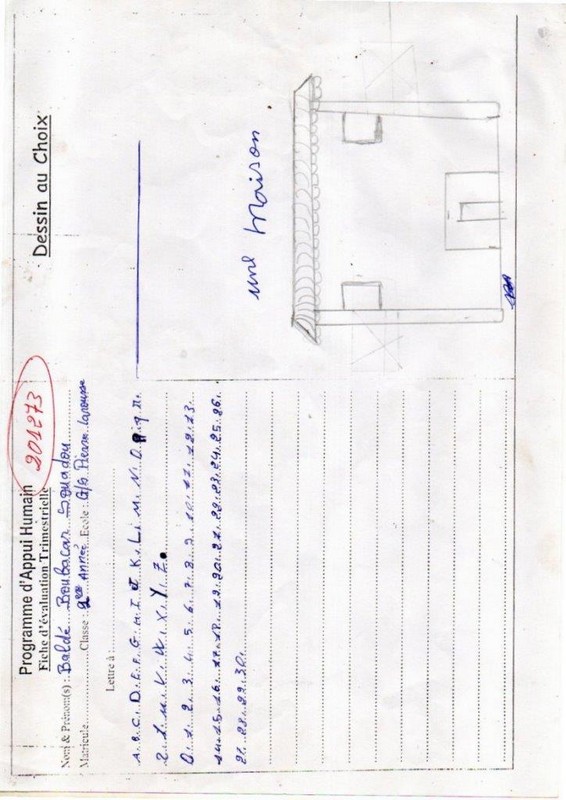 Programme d'Appui Humain
201273
Fiche d'évaluation Trimestrielle
Nom & Prénom(s) : Baldé Boubacar
Matricule Classe : 2ème Année Ecole : G/S Pierre Larousse
Lettre à :
A. B. C. D. E. F. G. H. I. J. K. L. M. N. O. P. q. R.
S. T. U. V. W. X. Y. Z.
0. 1. 2. 3. 4. 5. 6. 7. 8. 9. 10. 11. 12. 13.
14. 15. 16. 17. 18. 19. 20. 21. 22. 23. 24. 25. 26.
27. 28. 29. 30.
Dessin au Choix
une Maison